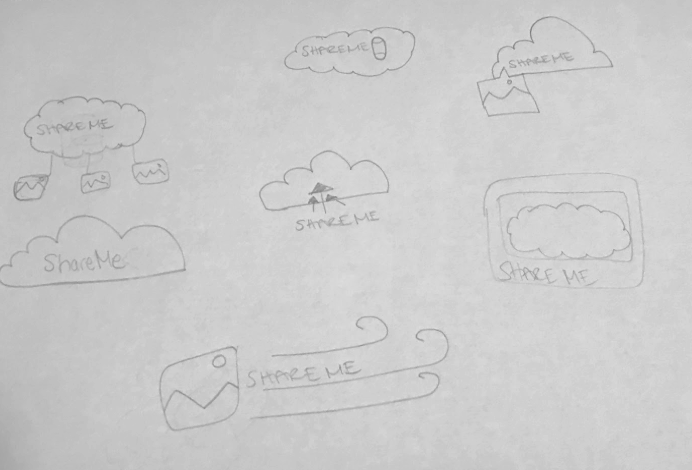 SHAREME
SHAREME
SHAREME
SHAREME
ShareMe
SHARE ME
SHARE ME